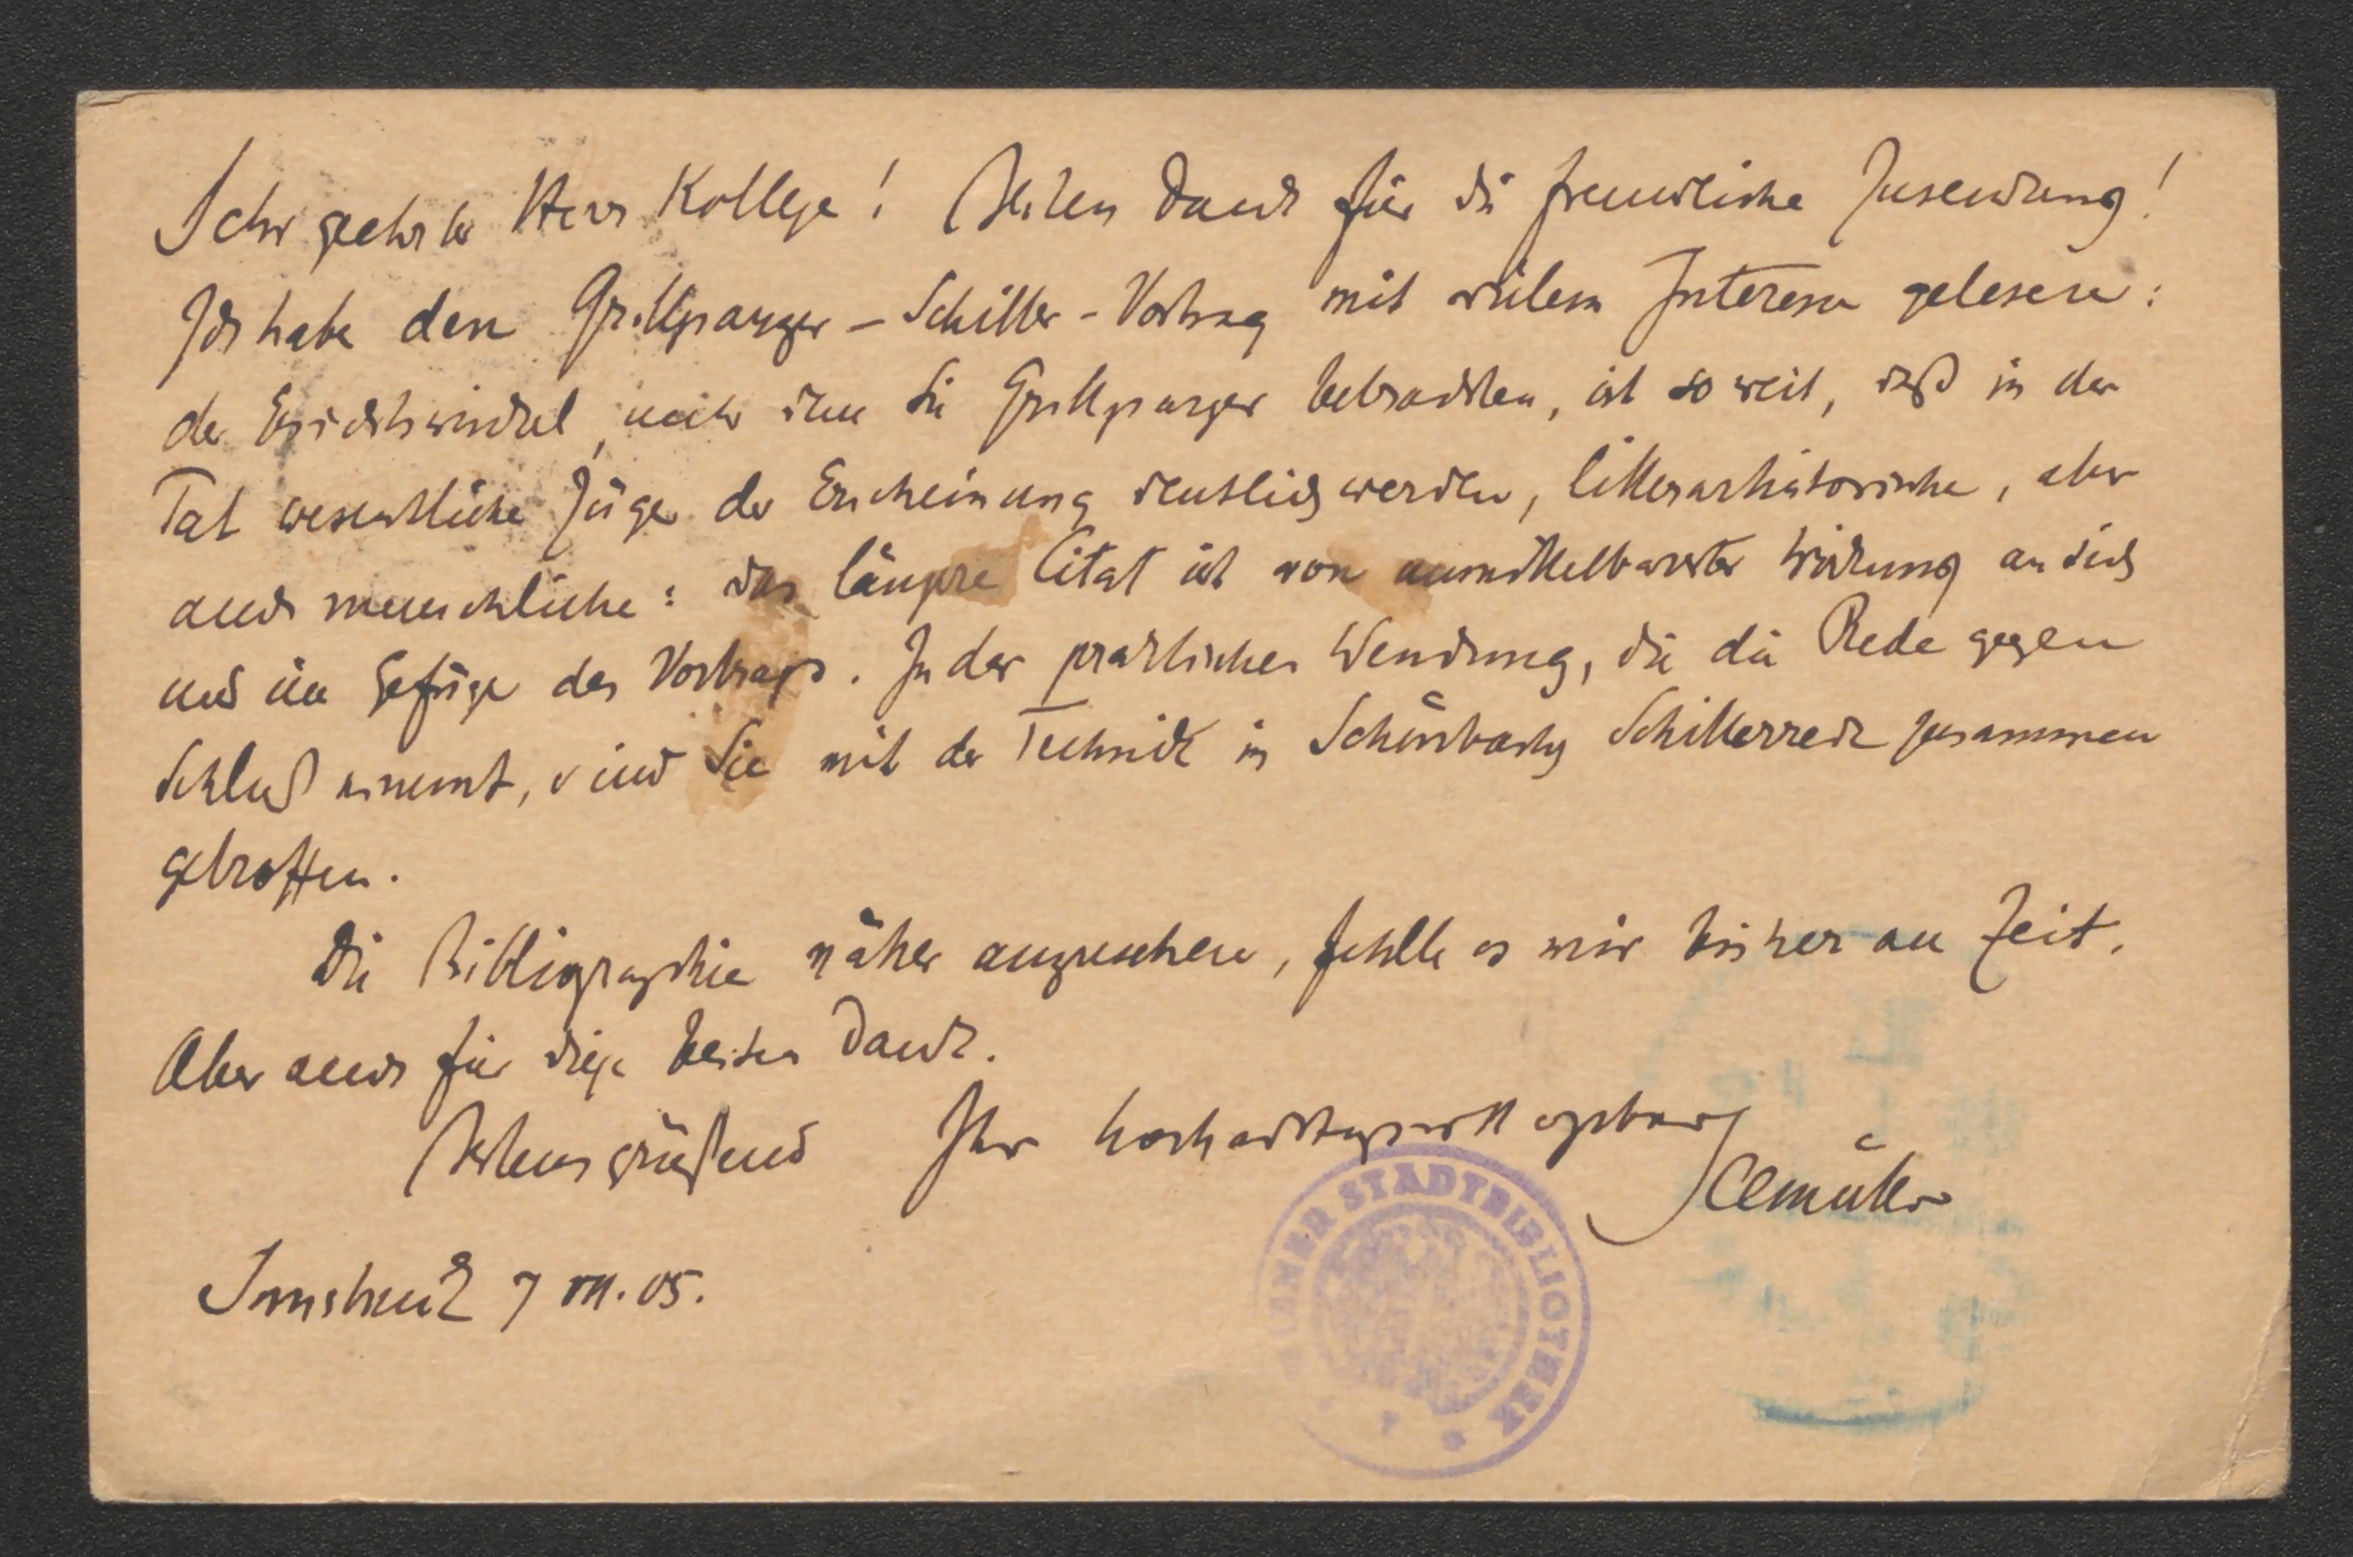 Sehr geehrter Herr Kollege! Besten Dank für die freundliche Zusendung!
Ich habe den Grillparzer-Schiller-Vortrag mit vielem Interesse gelesen:
der Gesichtswinkel, unter dem Sie Grillparzer betrachten, ist so weit, daß in der
Tat wesentliche Züge der Erscheinung deutlich werden, litterarhistorische, aber
auch menschliche: das längre Citat ist von unmittelbarster Wirkung an sich
und im Gefüge des Vortrags. In der praktischen Wendung, die die Rede gegen
Schluß nimmt, sind Sie mit der Technik in Schönbachs Schillerrede zusammen
getroffen.
Die Bibliographie näher anzusehen, fehlte es mir bisher an Zeit.
Aber auch für diese besten Dank.
Bestens grüßend Ihr hochachtungsvoll ergebener
Seemüller
Innsbruck 7 VII. 05.
WIENER STADTBIBLIOTHEK